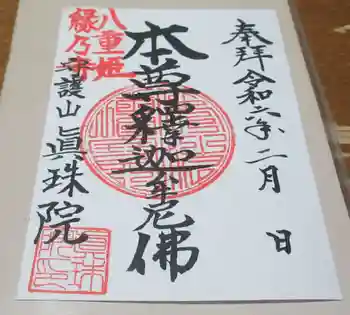 奉拝 令和六年二月 日
本尊 釈迦牟尼佛
八重姫
縁乃寺
守護山 眞珠院